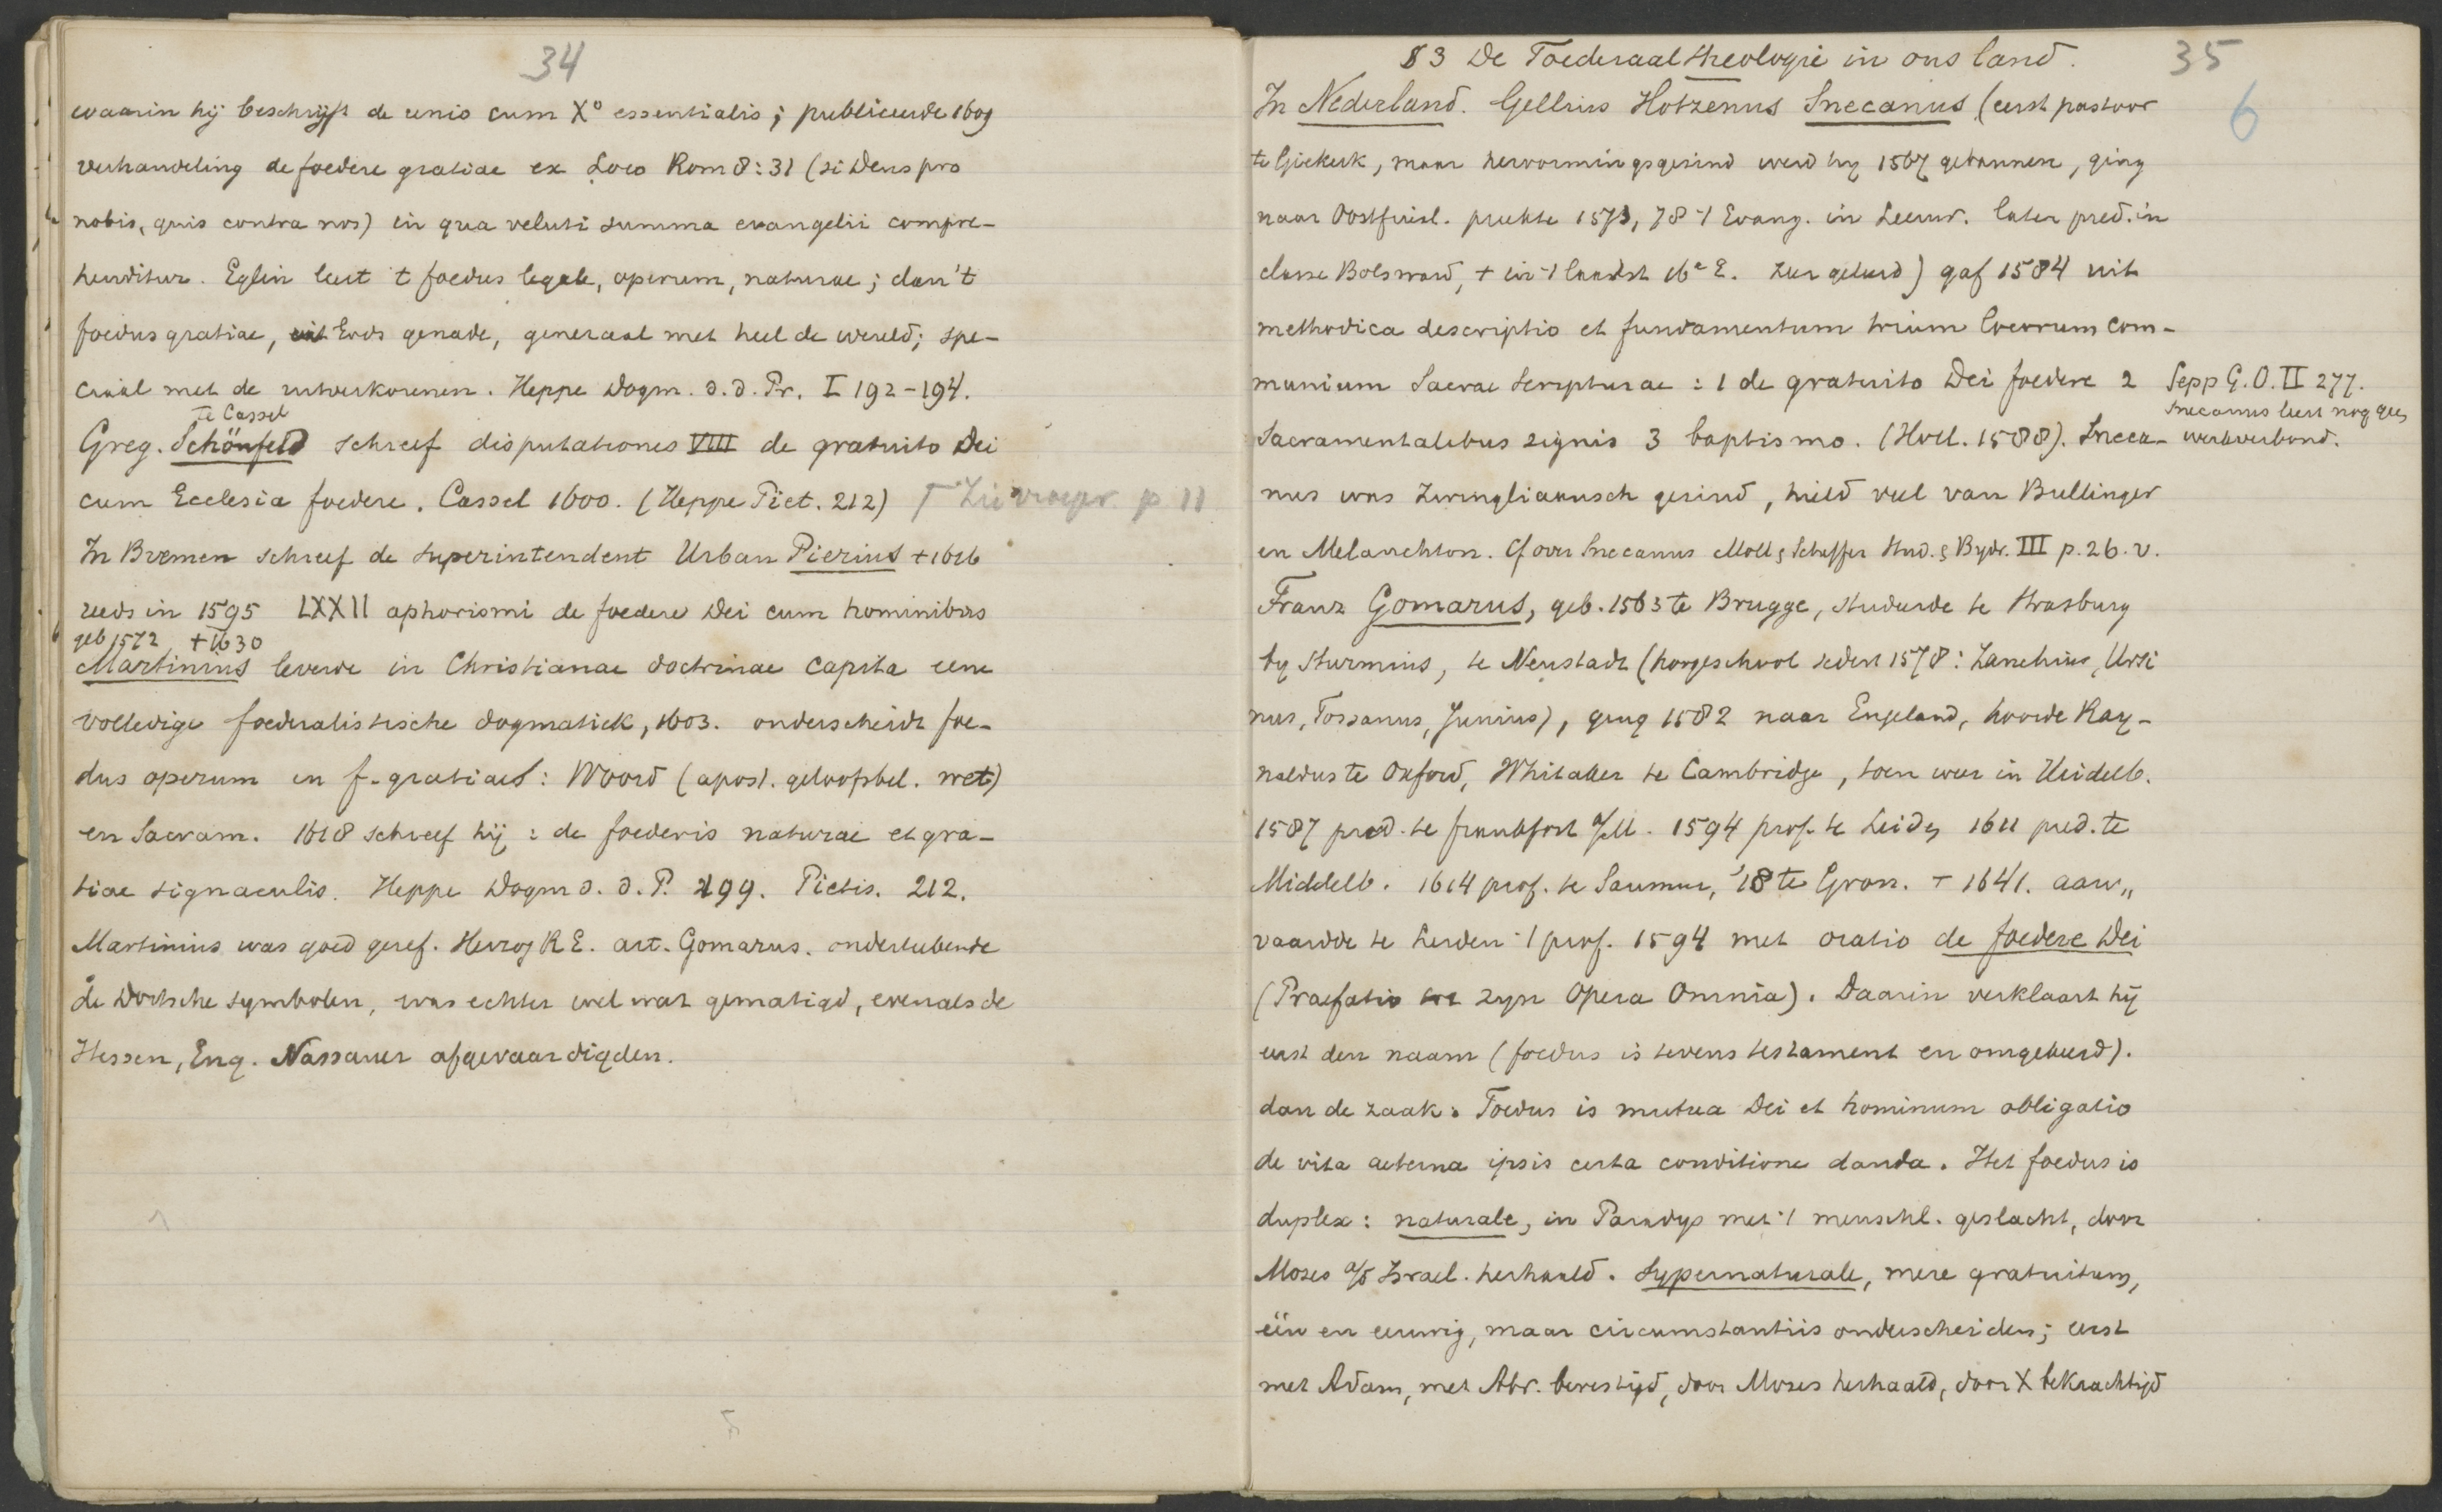 34
waarin hij beschrijft de unio cum X° essentialis; publiceerde 1609
verhandeling de foedere gratiae ex Loco Rom 8:31 (si Deus pro
nobis, quis contra nos) in qua veluti summa evangelii compre-
henditur. Eglin leert 't foedus legale, operum, naturae; dan 't
foedus gratiae, uit Gods genade, generaal met heel de wereld; spe-
ciaal met de uitverkorenen. Heppe Dogm. d. d. Pr. I 192-194.
te Cassel
Greg. Schönfeld schreef disputationes VIII de gratuito Dei
cum Ecclesia foedere. Cassel 1600. (Heppe Piet. 212) Zie vroeger p. 11
In Bremen schreef de superintendent Urban Pierius +1616
reeds in 1595 LXXII aphorismi de foedere Dei cum hominibus
geb 1572 +1630
Martinius leverde in Christianae doctrinae capita eene
volledige foederalistische dogmatiek, 1603. onderscheidt foe-
dus operum en f. gratiae: Woord (apost. geloofsbel. wet)
en Sacram. 1618 schreef hij: de foederis naturae et gra-
tiae signaculis. Heppe Dogm d. d. P. 199. Pietis. 212.
Martinius was goed geref. Herzog RE. art. Gomarus. onderteekende
de Dortsche symbolen, was echter wel wat gematigd, evenals de
Hessen, Eng. Nassauer afgevaardigden.
§3 De Foederaaltheologie in ons land.
35
6
In Nederland. Gellius Hotzenus Snecanus (eerst pastoor
te Giekerk, maar hervormingsgezind werd hij 1567 gebannen, ging
naar Oostfriesl. preekte 1573, 78 't Evang. in Leeuw. later pred. in
classe Bolsward, + in 't laatst 16e E. zeer geleerd) gaf 1584 uit
methodica descriptio et fundamentum trium locorum com-
munium Sacrae Scripturae: 1 de gratuito Dei foedere 2
Sepp G.O. II 277.
Snecanus leert nog geen
Sacramentalibus signis 3 baptismo. (Holl. 1588). Sneca-
werkverbond.
nus was Zwingliaansch gezind, hield veel van Bullinger
en Melanchton. Cf over Snecanus Moll & Scheffer Stud. & Bijdr. III p. 26. v.
Franz Gomarus, geb. 1563 te Brugge, studeerde te Strasburg
bij Sturmius, te Neustadt (hoogeschool sedert 1578: Zanchius, Ursi
nus, Tossanus, Junius), ging 1582 naar Engeland, hoorde Ray-
naldus te Oxford, Whitaker te Cambridge, toen weer in Heidelb.
1587 pred. te Frankfort a/M. 1594 prof. te Leiden 1611 pred. te
Middelb. 1614 prof. te Saumur, '18 te Gron. + 1641. aan„
vaardde te Leiden 't prof. 1594 met oratio de foedere Dei
(Praefatio zijn Opera Omnia). Daarin verklaart hij
eerst den naam (foedus is tevens testament en omgekeerd).
dan de zaak. Foedus is mutua Dei et hominum obligatio
de vita aeterna ipsis certa conditione danda. Het foedus is
duplex: naturale, in Paradijs met 't menschl. geslacht, door
Mozes a/d Israel. herhaald. Supernaturale, mere gratuitum,
één en eeuwig, maar circumstantiis onderscheiden; eerst
met Adam, met Abr. bevestigd, door Mozes herhaald, door X bekrachtigd